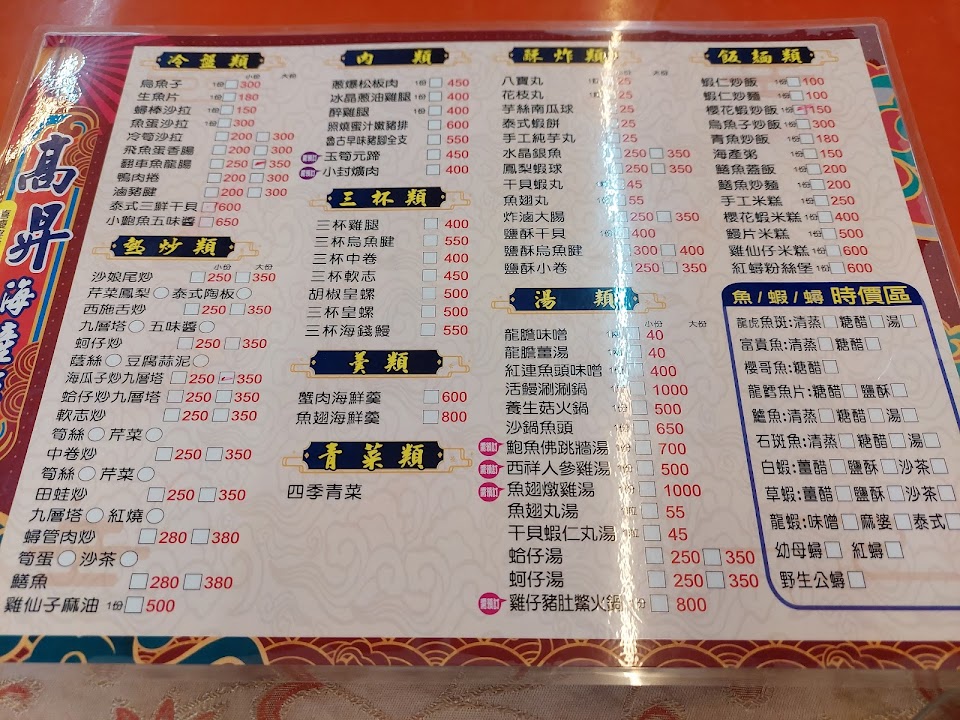 高昇海產
冷盤類
小份 大份
烏魚子 1份 300
生魚片 1份 180
蟳棒沙拉 1份 150
魚蛋沙拉 1份 100
冷筍沙拉 200 300
飛魚蛋香腸 200 300
翻車魚龍腸 250 350
鴨肉捲 200 300
滷豬腱 200 300
泰式三鮮干貝 600
小鮑魚五味醬 650
熱炒類
小份 大份
沙娘尾炒 250 350
芹菜鳳梨 泰式陶板
西施舌炒 250 350
九層塔 五味醬
蚵仔炒 250 350
蔭絲 豆腐蒜泥
海瓜子炒九層塔 250 350
蛤仔炒九層塔 250 350
軟志炒 250 350
筍絲 芹菜
中卷炒 250 350
筍絲 芹菜
田蛙炒 250 350
九層塔 紅燒
蟳管肉炒 280 380
筍蛋 沙茶
鱔魚 280 380
雞仙子麻油 1份 500
肉類
蔥爆松板肉 1份 450
冰晶蔥油雞腿 1份 400
醉雞腿 1份 400
照燒蜜汁嫩豬排 600
魯古早味豬腳全支 550
需預訂 玉筍元蹄 450
需預訂 小封爌肉 400
三杯類
三杯雞腿 400
三杯烏魚腱 550
三杯中卷 400
三杯軟志 450
胡椒皇螺 500
三杯皇螺 500
三杯海錢鰻 550
羹類
蟹肉海鮮羹 600
魚翅海鮮羹 800
青菜類
四季青菜
酥炸類
小份 大份
八寶丸 25
花枝丸 25
芋絲南瓜球 25
泰式蝦餅 25
手工純芋丸 25
水晶銀魚 250 350
鳳梨蝦球 250 350
干貝蝦丸 45
魚翅丸 55
炸滷大腸 250 350
鹽酥中卷
鹽酥烏魚腱 300 400
鹽酥小卷 250 350
湯類
小份 大份
龍膽味噌 40
龍膽薑湯 40
紅連魚頭味噌 400
活鰻涮涮鍋 1000
養生菇火鍋 500
沙鍋魚頭 650
需預訂 鮑魚佛跳牆湯 700
需預訂 西祥人參雞湯 500
需預訂 魚翅燉雞湯 1000
魚翅丸湯 55
干貝蝦仁丸湯 45
蛤仔湯 250 350
蚵仔湯 250 350
需預訂 雞仔豬肚鱉火鍋 800
飯麵類
蝦仁炒飯 1份 100
蝦仁炒麵 1份 100
櫻花蝦炒飯 1份 150
烏魚子炒飯 1份 300
青魚炒飯 1份 180
海產粥 1份 150
鱔魚蓋飯 1份 200
鱔魚炒麵 1份 200
手工米糕 1份 250
櫻花蝦米糕 1份 500
鰻片米糕 1份 500
雞仙仔米糕 1份 600
紅蟳粉絲堡 1份 600
魚/蝦/蟳 時價區
龍虎魚斑:清蒸 糖醋 湯
富貴魚:清蒸 糖醋
櫻哥魚:糖醋
龍鱈魚片:糖醋 鹽酥
鱸魚:清蒸 糖醋 湯
石斑魚:清蒸 糖醋 湯
白蝦:薑醋 鹽酥 沙茶
草蝦:薑醋 鹽酥 沙茶
龍蝦:味噌 麻婆 泰式
幼母蟳 紅蟳
野生公蟳